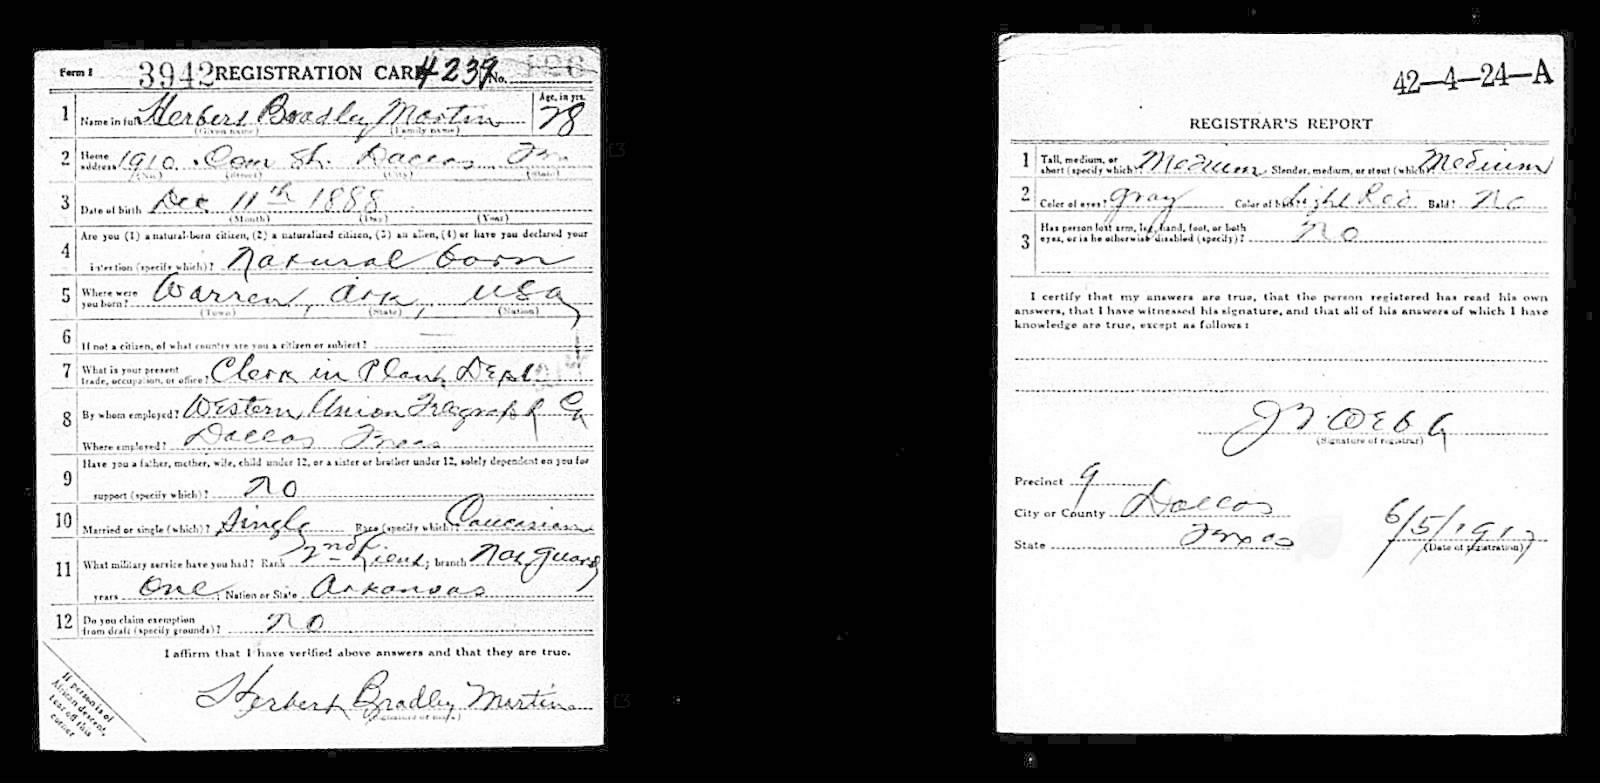 Form 1 3942 REGISTRATION CARD 4239 No. 126
1 Name in full Herbert Bradley Martin Age, in yrs. 28
(Given name) (Family name)
2 Home address 1910 Dallas Tex
(No.) (Street) (City) (State)
3 Date of birth Dec 11th 1888
(Month) (Day) (Year)
4 Are you (1) a natural-born citizen, (2) a naturalized citizen, (3) an alien, (4) or have you declared your
intention (specify which)? Natural born
5 Where were you born? Warren, Ark, USA
(Town) (State) (Nation)
6 If not a citizen, of what country are you a citizen or subject?
7 What is your present trade, occupation, or office? Clerk in Plant Dept.
8 By whom employed? Western Union Telegraph Co
Where employed? Dallas Texas
9 Have you a father, mother, wife, child under 12, or a sister or brother under 12, solely dependent on you for
support (specify which)? No
10 Married or single (which)? Single Race (specify which)? Caucasian
11 What military service have you had? Rank 2nd Lieut; branch Nat Guard
years One; Nation or State Arkansas
12 Do you claim exemption from draft (specify grounds)? No
I affirm that I have verified above answers and that they are true.
Herbert Bradley Martin
(Signature or mark)
If person is of
African descent,
tear off this
corner
42-4-24-A
REGISTRAR'S REPORT
1 Tall, medium, or short (specify which)? Medium Slender, medium, or stout (which)? Medium
2 Color of eyes? Gray Color of hair? Light Red Bald? No
3 Has person lost arm, leg, hand, foot, or both
eyes, or is he otherwise disabled (specify)? No
I certify that my answers are true, that the person registered has read his own
answers, that I have witnessed his signature, and that all of his answers of which I have
knowledge are true, except as follows:
Webb
(Signature of registrar)
Precinct 9
City or County Dallas
State Texas 6/5/1917
(Date of registration)